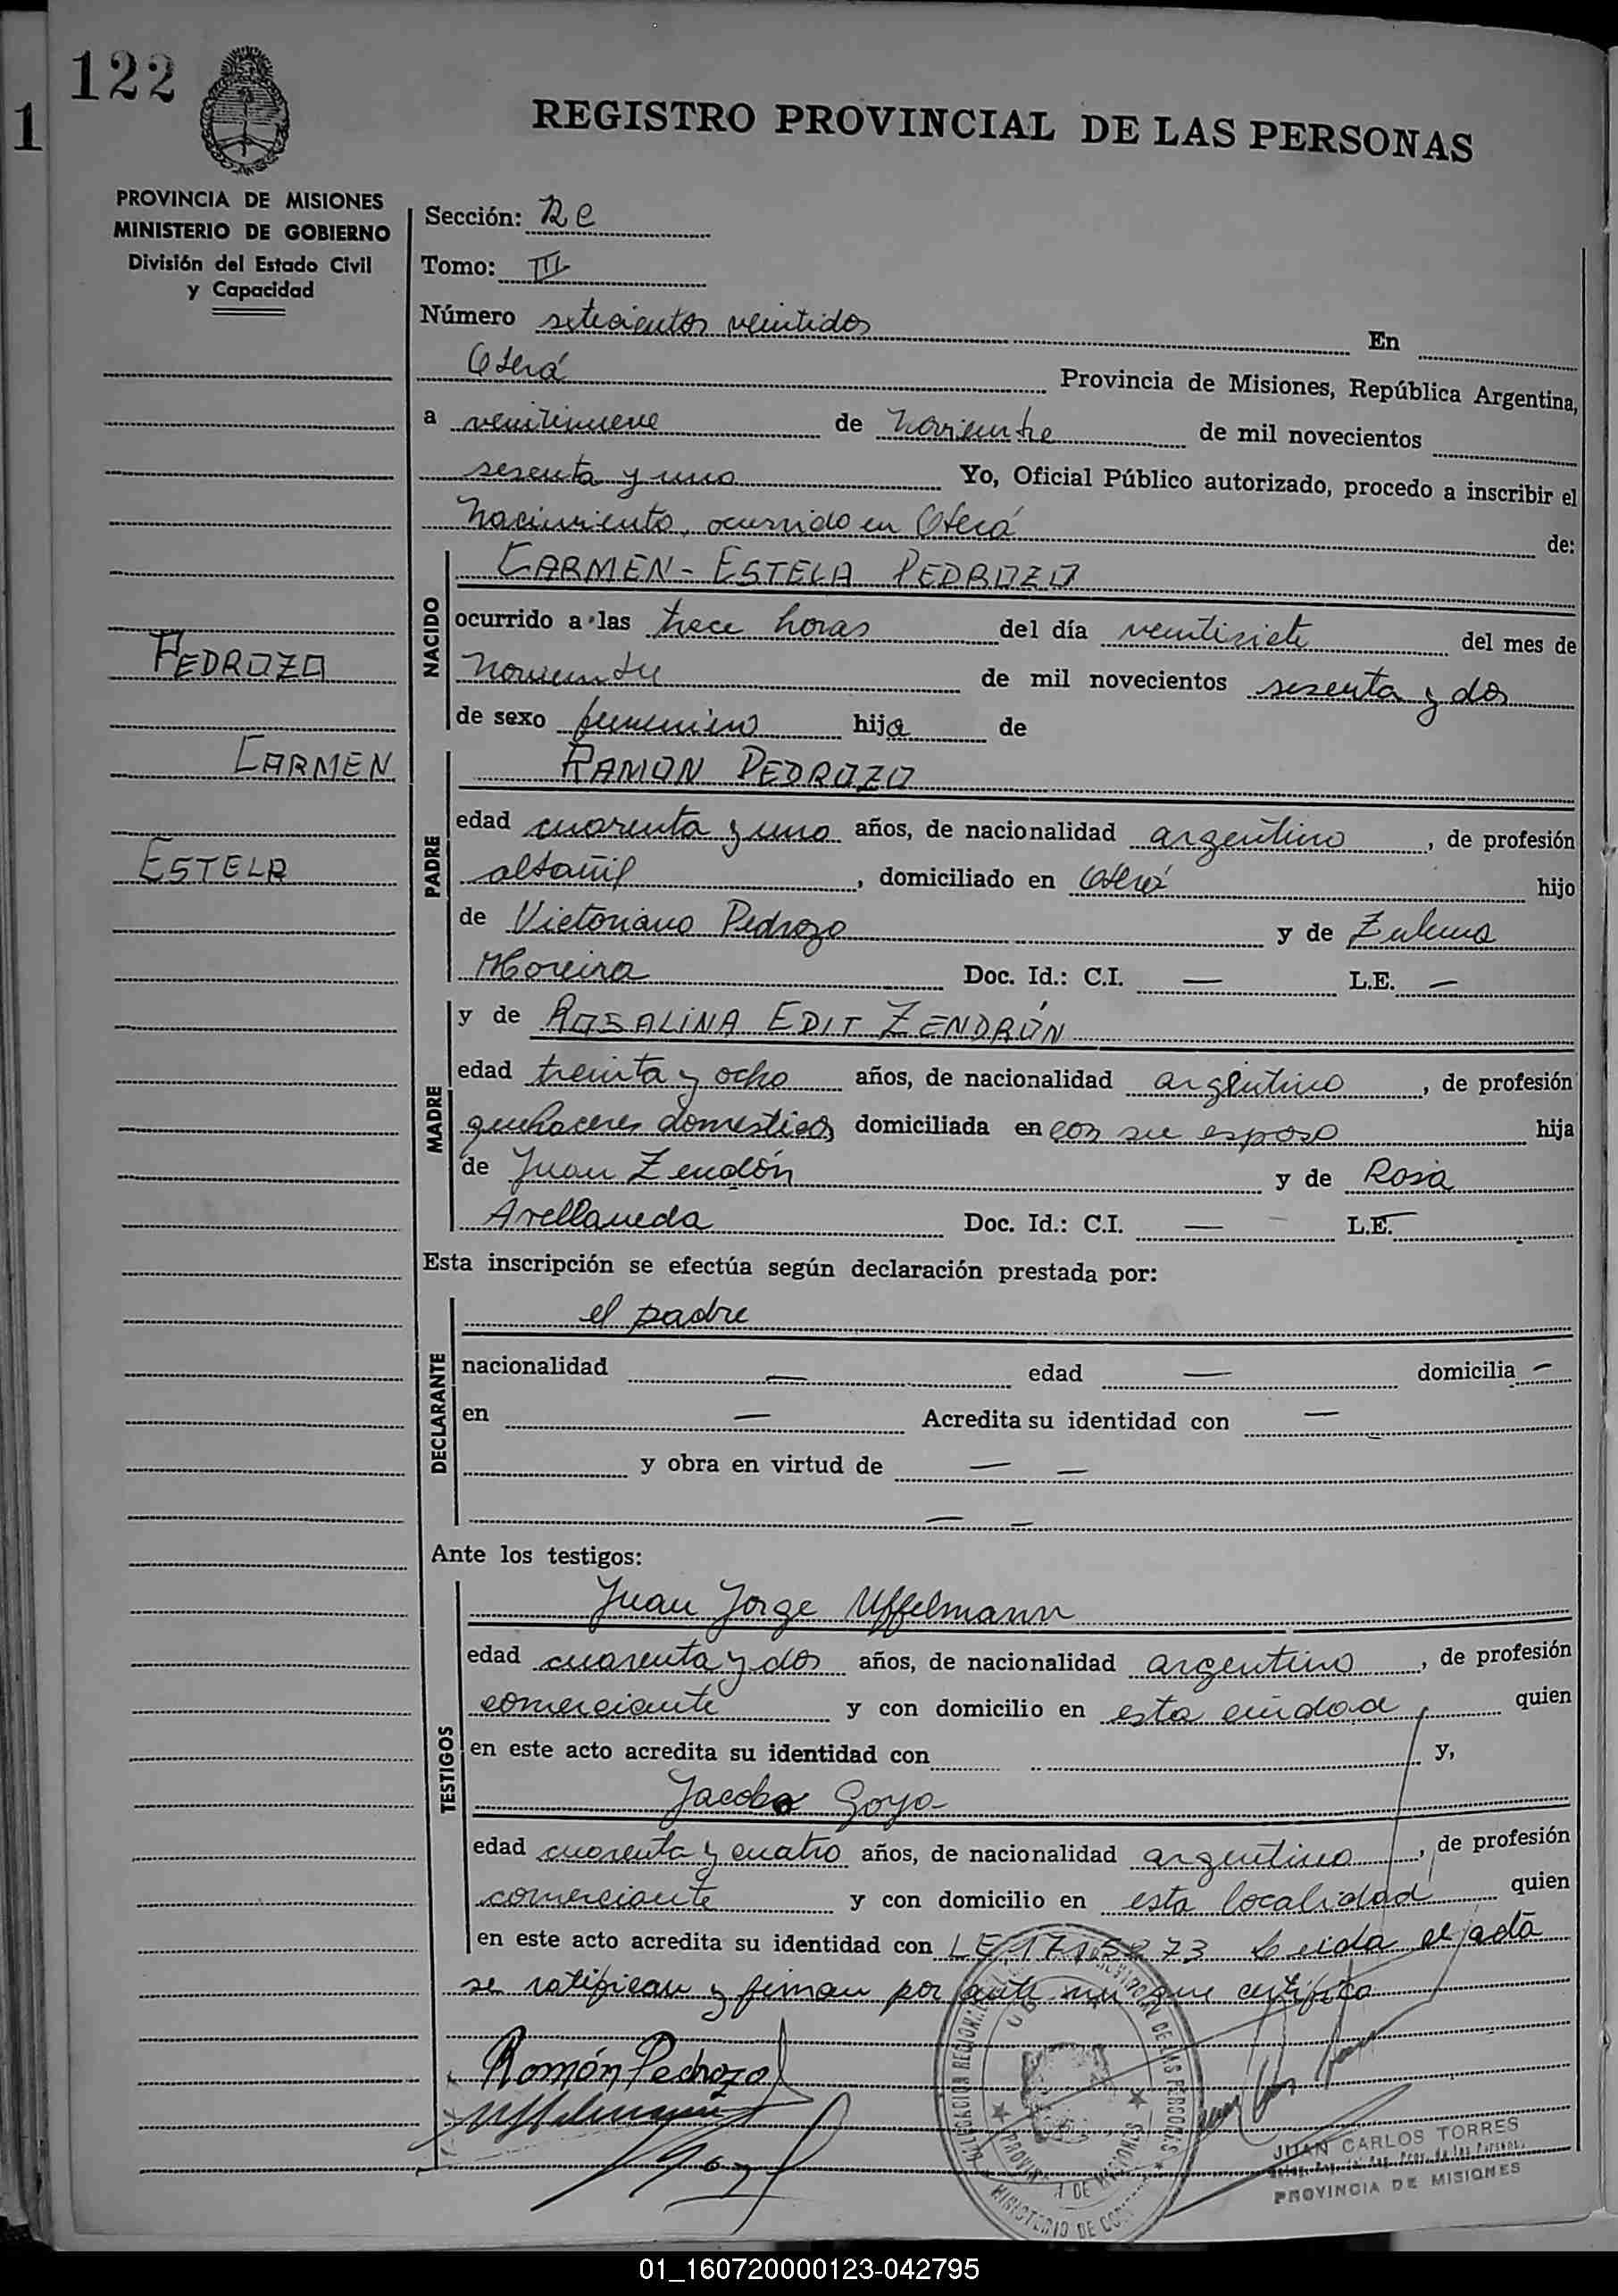 122
1
REGISTRO PROVINCIAL DE LAS PERSONAS
PROVINCIA DE MISIONES
MINISTERIO DE GOBIERNO
División del Estado Civil
y Capacidad
PEDROZO
CARMEN
ESTELA
Sección: RC
Tomo: III
Número setecientos veintidos En
Oberá Provincia de Misiones, República Argentina,
a veintinueve de Noviembre de mil novecientos
sesenta y uno Yo, Oficial Público autorizado, procedo a inscribir el
Nacimiento, ocurrido en Oberá de:
NACIDO
CARMEN-ESTELA PEDROZO
ocurrido a las trece horas del día veintisiete del mes de
Noviembre de mil novecientos sesenta y dos
de sexo femenino hija de
PADRE
RAMON PEDROZO
edad cuarenta y uno años, de nacionalidad argentino, de profesión
albañil, domiciliado en Oberá hijo
de Victoriano Pedrozo y de Zulma
Moreira Doc. Id.: C.I. — L.E. —
MADRE
y de ROSALINA EDIT ZENDRÓN
edad treinta y ocho años, de nacionalidad argentino, de profesión
quehaceres domesticos domiciliada en con su esposo hija
de Juan Zendón y de Rosa
Avellaneda Doc. Id.: C.I. — L.E. —
Esta inscripción se efectúa según declaración prestada por:
DECLARANTE
el padre
nacionalidad — edad — domicilia —
en — Acredita su identidad con —
y obra en virtud de — —
— —
Ante los testigos:
TESTIGOS
Juan Jorge Uffelmann
edad cuarenta y dos años, de nacionalidad argentino, de profesión
comerciante y con domicilio en esta ciudad, quien
en este acto acredita su identidad con y,
Jacobo Goyo
edad cuarenta y cuatro años, de nacionalidad argentino, de profesión
comerciante y con domicilio en esta localidad quien
en este acto acredita su identidad con LE Leida el acta
se ratifican y firman por ante mi que certifico
Ramón Pedrozo
Uffelmann
JUAN CARLOS TORRES
PROVINCIA DE MISIONES
MINISTERIO DE
01_160720000123-042795